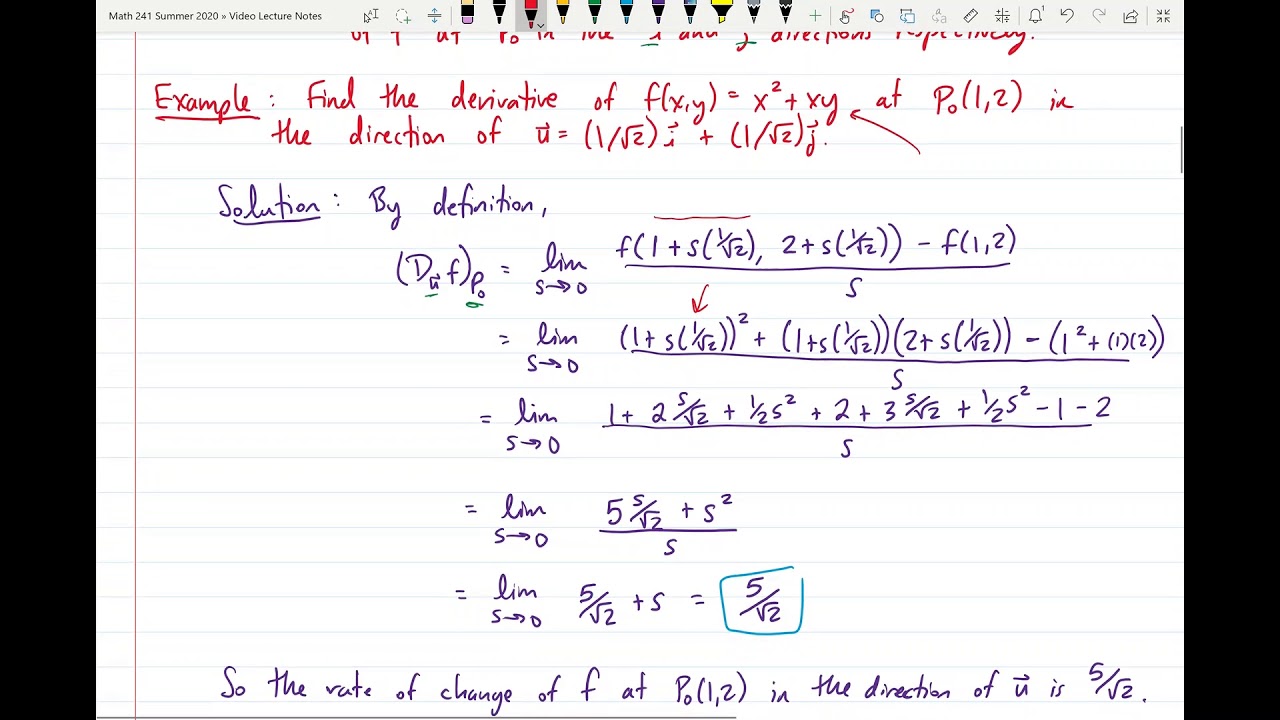 Math 241 Summer 2020 » Video Lecture Notes
of f at P₀ in the i and j directions respectively.
Example: Find the derivative of f(x,y) = x² + xy at P₀(1,2) in
the direction of u⃗ = (1/√2) i⃗ + (1/√2) j⃗.
Solution: By definition,
(D_u⃗ f)_P₀ = lim s→0 (f(1 + s(1/√2), 2 + s(1/√2)) - f(1,2)) / s
= lim s→0 ((1 + s(1/√2))² + (1 + s(1/√2))(2 + s(1/√2)) - (1² + (1)(2))) / s
= lim s→0 (1 + 2 s/√2 + 1/2 s² + 2 + 3 s/√2 + 1/2 s² - 1 - 2) / s
= lim s→0 (5 s/√2 + s²) / s
= lim s→0 5/√2 + s = 5/√2
So the rate of change of f at P₀(1,2) in the direction of u⃗ is 5/√2.